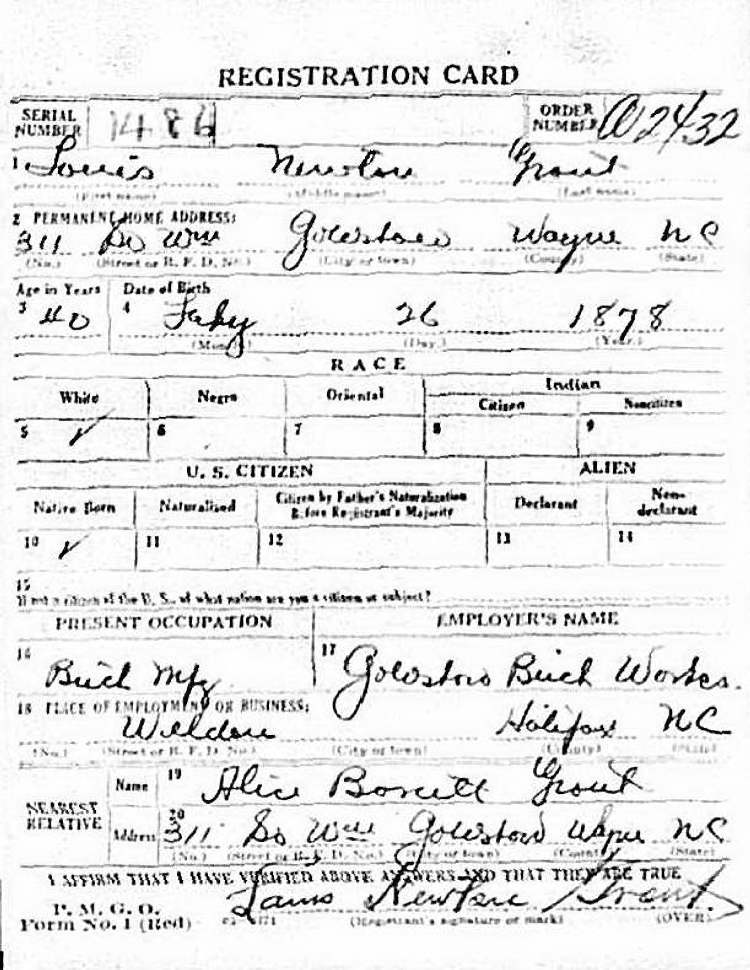 REGISTRATION CARD
SERIAL NUMBER 1484 ORDER NUMBER A2432
1 Louis Newton Grant
(First name) (Middle name) (Last name)
2 PERMANENT HOME ADDRESS:
311 So Wm Goldsboro Wayne NC
(No.) (Street or R. F. D. No.) (City or town) (County) (State)
Age in Years Date of Birth
3 40 4 Feby 26 1878
(Month) (Day) (Year)
RACE
White Negro Oriental Indian
Citizen Noncitizen
5 ✓ 6 7 8 9
U. S. CITIZEN ALIEN
Native Born Naturalized Citizen by Father's Naturalization Before Registrant's Majority Declarant Non-declarant
10 ✓ 11 12 13 14
15
If not a citizen of the U. S., of what nation are you a citizen or subject?
PRESENT OCCUPATION EMPLOYER'S NAME
16 Brick Mfg 17 Goldsboro Brick Works.
18 PLACE OF EMPLOYMENT OR BUSINESS:
Weldon Halifax NC
(No.) (Street or R. F. D. No.) (City or town) (County) (State)
NEAREST RELATIVE
Name 19 Alice Grant
Address 20 311 So Wm Goldsboro Wayne NC
(No.) (Street or R. F. D. No.) (City or town) (County) (State)
I AFFIRM THAT I HAVE VERIFIED ABOVE ANSWERS AND THAT THEY ARE TRUE
P. M. G. O.
Form No. 1 (Red) Louis Newton Grant
(Registrant's signature or mark) (OVER)